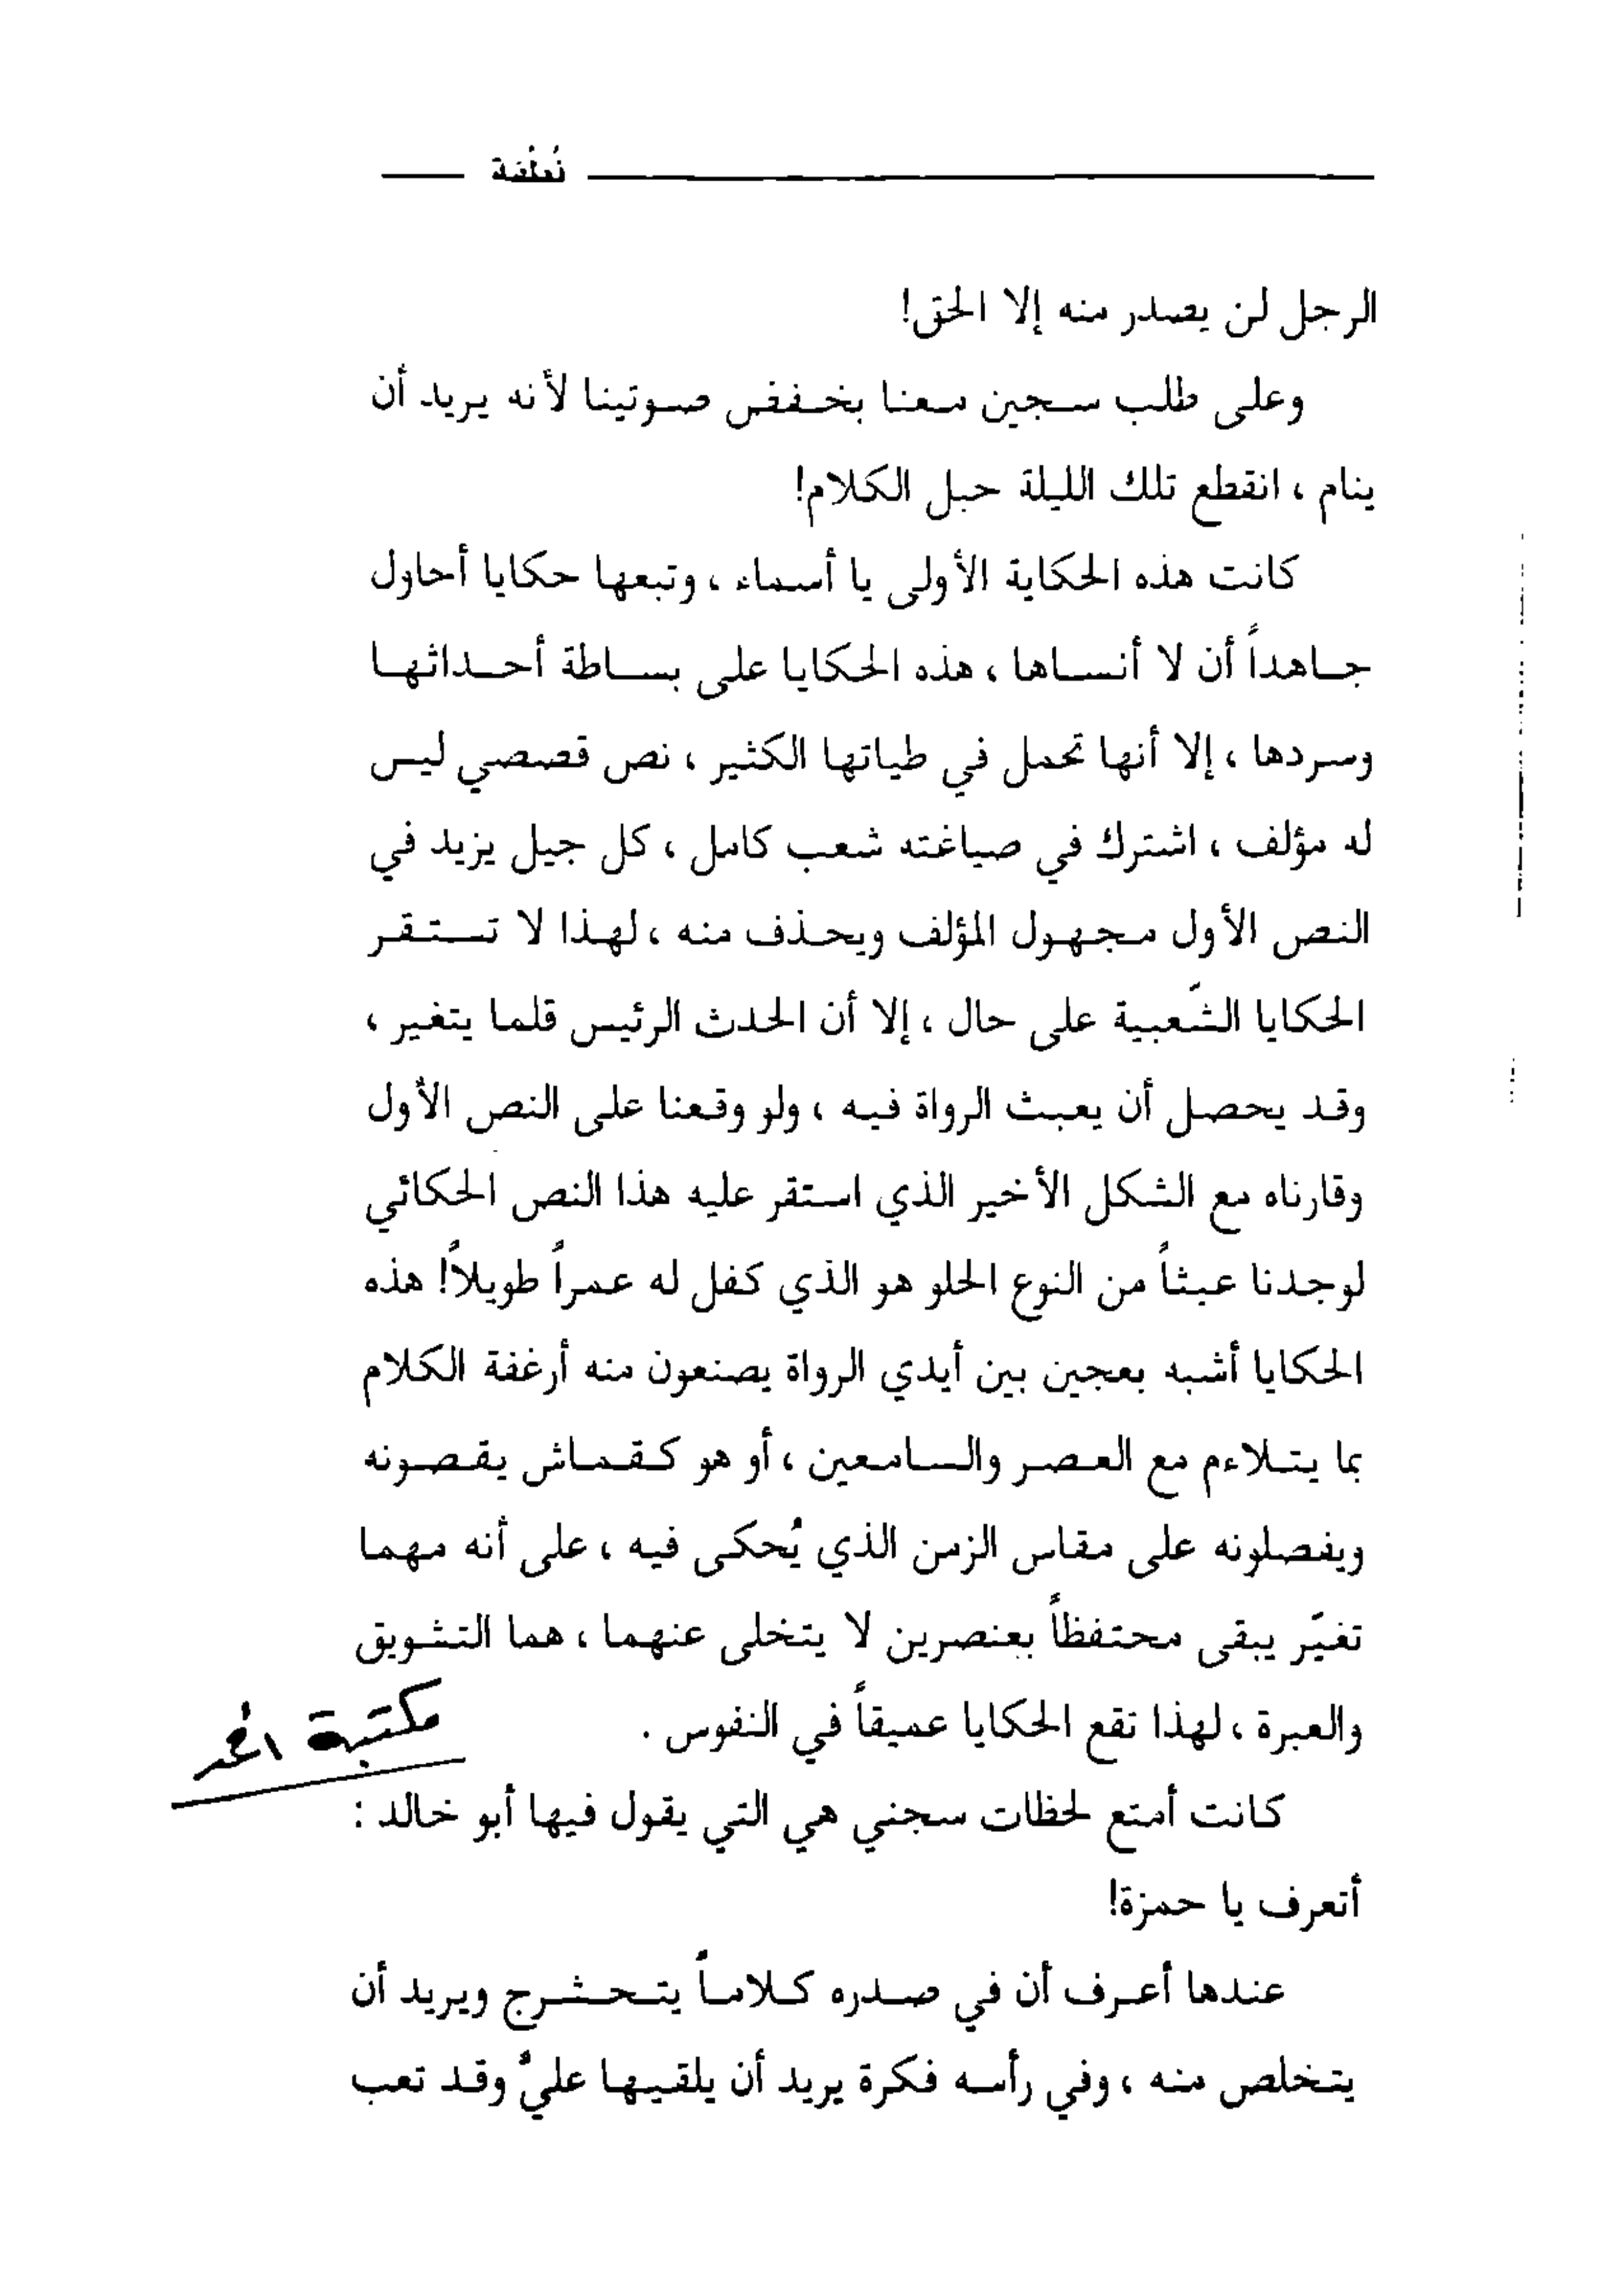 نُطْفة
الرجل لن يصدر منه إلا الحق!
وعلى طلب سجين معنا بخفض صوتينا لأنه يريد أن
ينام ، انقطع تلك الليلة حبل الكلام!
كانت هذه الحكاية الأولى يا أسماء ، وتبعها حكايا أحاول
جاهداً أن لا أنساها ، هذه الحكايا على بساطة أحداثها
وسردها ، إلا أنها تحمل في طياتها الكثير ، نص قصصي ليس
له مؤلف ، اشترك في صياغته شعب كامل ، كل جيل يزيد في
النص الأول مجهول المؤلف ويحذف منه ، لهذا لا تستقر
الحكايا الشّعبية على حال ، إلا أن الحدث الرئيس قلما يتغير ،
وقد يحصل أن يعبث الرواة فيه ، ولو وقعنا على النص الأول
وقارناه مع الشكل الأخير الذي استقر عليه هذا النص الحكائي
لوجدنا عبثاً من النوع الحلو هو الذي كفل له عمراً طويلاً! هذه
الحكايا أشبه بعجين بين أيدي الرواة يصنعون منه أرغفة الكلام
بما يتلاءم مع العصر والسامعين ، أو هو كقماش يقصونه
ويفصلونه على مقاس الزمن الذي يُحكى فيه ، على أنه مهما
تغيّر يبقى محتفظاً بعنصرين لا يتخلى عنهما ، هما التشويق
والعبرة ، لهذا تقع الحكايا عميقاً في النفوس .
مكتبة
كانت أمتع لحظات سجني هي التي يقول فيها أبو خالد :
أتعرف يا حمزة!
عندها أعرف أن في صدره كلاماً يتحشرج ويريد أن
يتخلص منه ، وفي رأسه فكرة يريد أن يلقيها عليّ وقد تعب